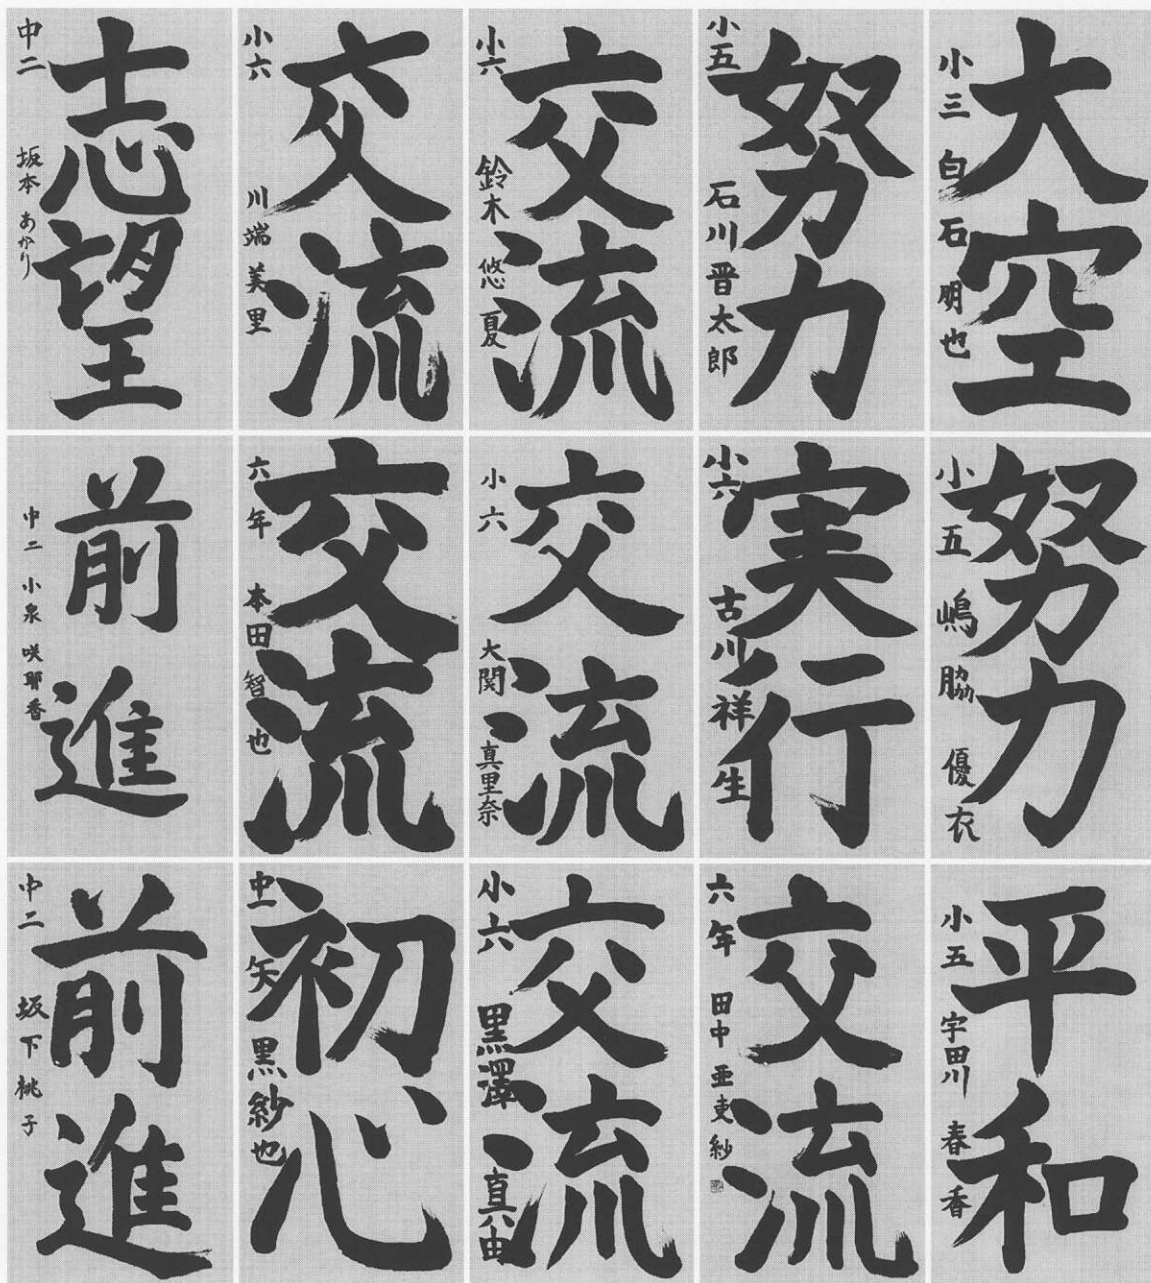 大空
小三 白石明也
努力
小五 石川晋太郎
交流
小六 鈴木悠夏
交流
小六 川端美里
志望
中二 坂本あかり
努力
小五 嶋脇優衣
実行
小六 古川祥生
交流
小六 大関真里奈
交流
六年 本田智也
前進
中二 小泉咲耶香
平和
小五 宇田川春香
交流
六年 田中亜吏紗
交流
小六 黒澤真由
初心
中一 矢黒紗也
前進
中二 坂下桃子